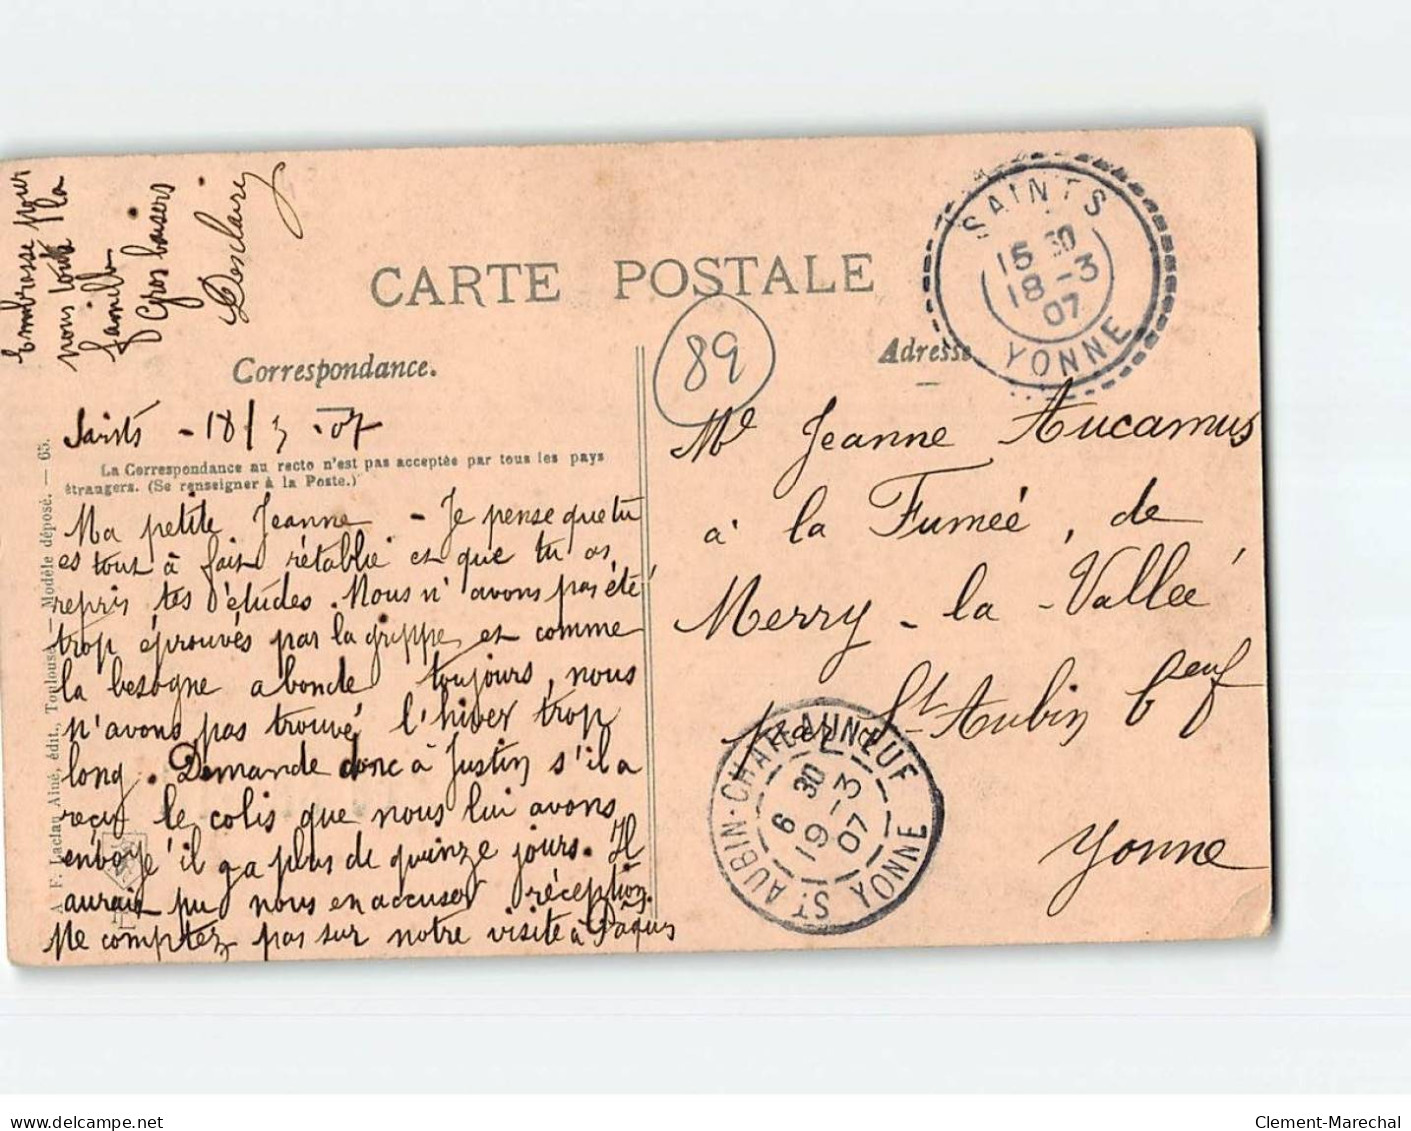 Embrasse pour
nous toute la
famille
Gros baisers
Desclaires
CARTE POSTALE
SAINTS
15 30
18 - 3
07
YONNE
89
Correspondance.
Adresse
Saints - 18/3 - 07
La Correspondance au recto n'est pas acceptée par tous les pays
étrangers. (Se renseigner à la Poste.)
Ma petite Jeanne - Je pense que tu
es tout à fait rétablie et que tu as
repris tes études. Nous n'avons pas été
trop éprouvés par la grippe et comme
la besogne abonde toujours, nous
n'avons pas trouvé l'hiver trop
long. Demande donc à Justin s'il a
reçu le colis que nous lui avons
envoyé il y a plus de quinze jours. Il
aurait pu nous en accuser réception.
Ne comptez pas sur notre visite à Pâques
A F. Laclau Aîné, édit., Toulouse. — Modèle déposé. — 65.
Mle Jeanne Aucamus
à la Fumée, de
Merry-la-Vallée
par St-Aubin Cheuf
Yonne
ST AUBIN-CHATEAUNEUF
6 30
19 - 3
07
YONNE
delcampe.net
Clement-Marechal